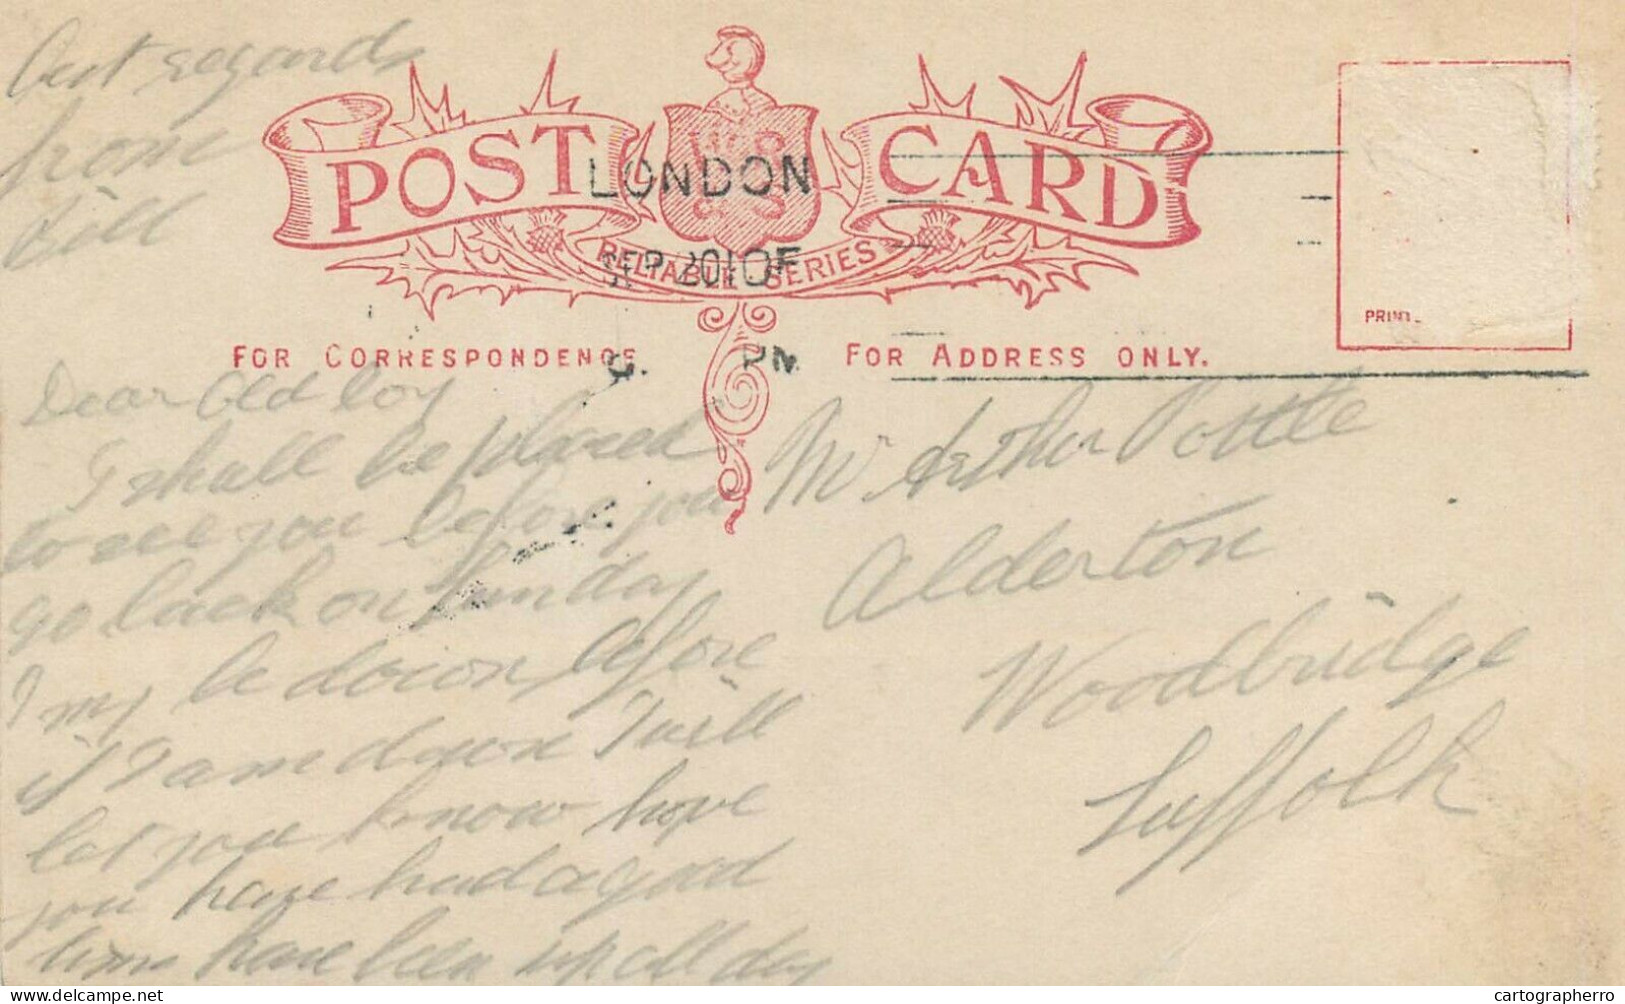 Best regards
from
Bill
POST CARD
W R & S
RELIABLE SERIES
LONDON
SEP 20 10
FOR CORRESPONDENCE
FOR ADDRESS ONLY.
PRINT
Dear Old boy
I shall be pleased
to see you before you
go back on Sunday
I my be down before
if I am down I will
let you know hope
you have had a good
time have been up all day
Mr Arthur Pottle
Alderton
Woodbridge
Suffolk
cartographerro